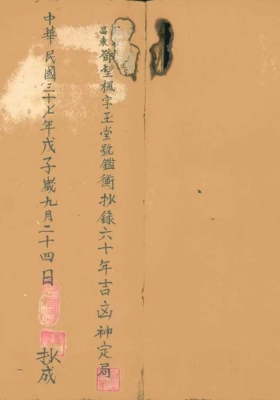 昌東鄧堃楓字玉堂號鑑衡抄錄六十年吉凶神定局
中華民國三十七年戊子歲九月二十四日抄成